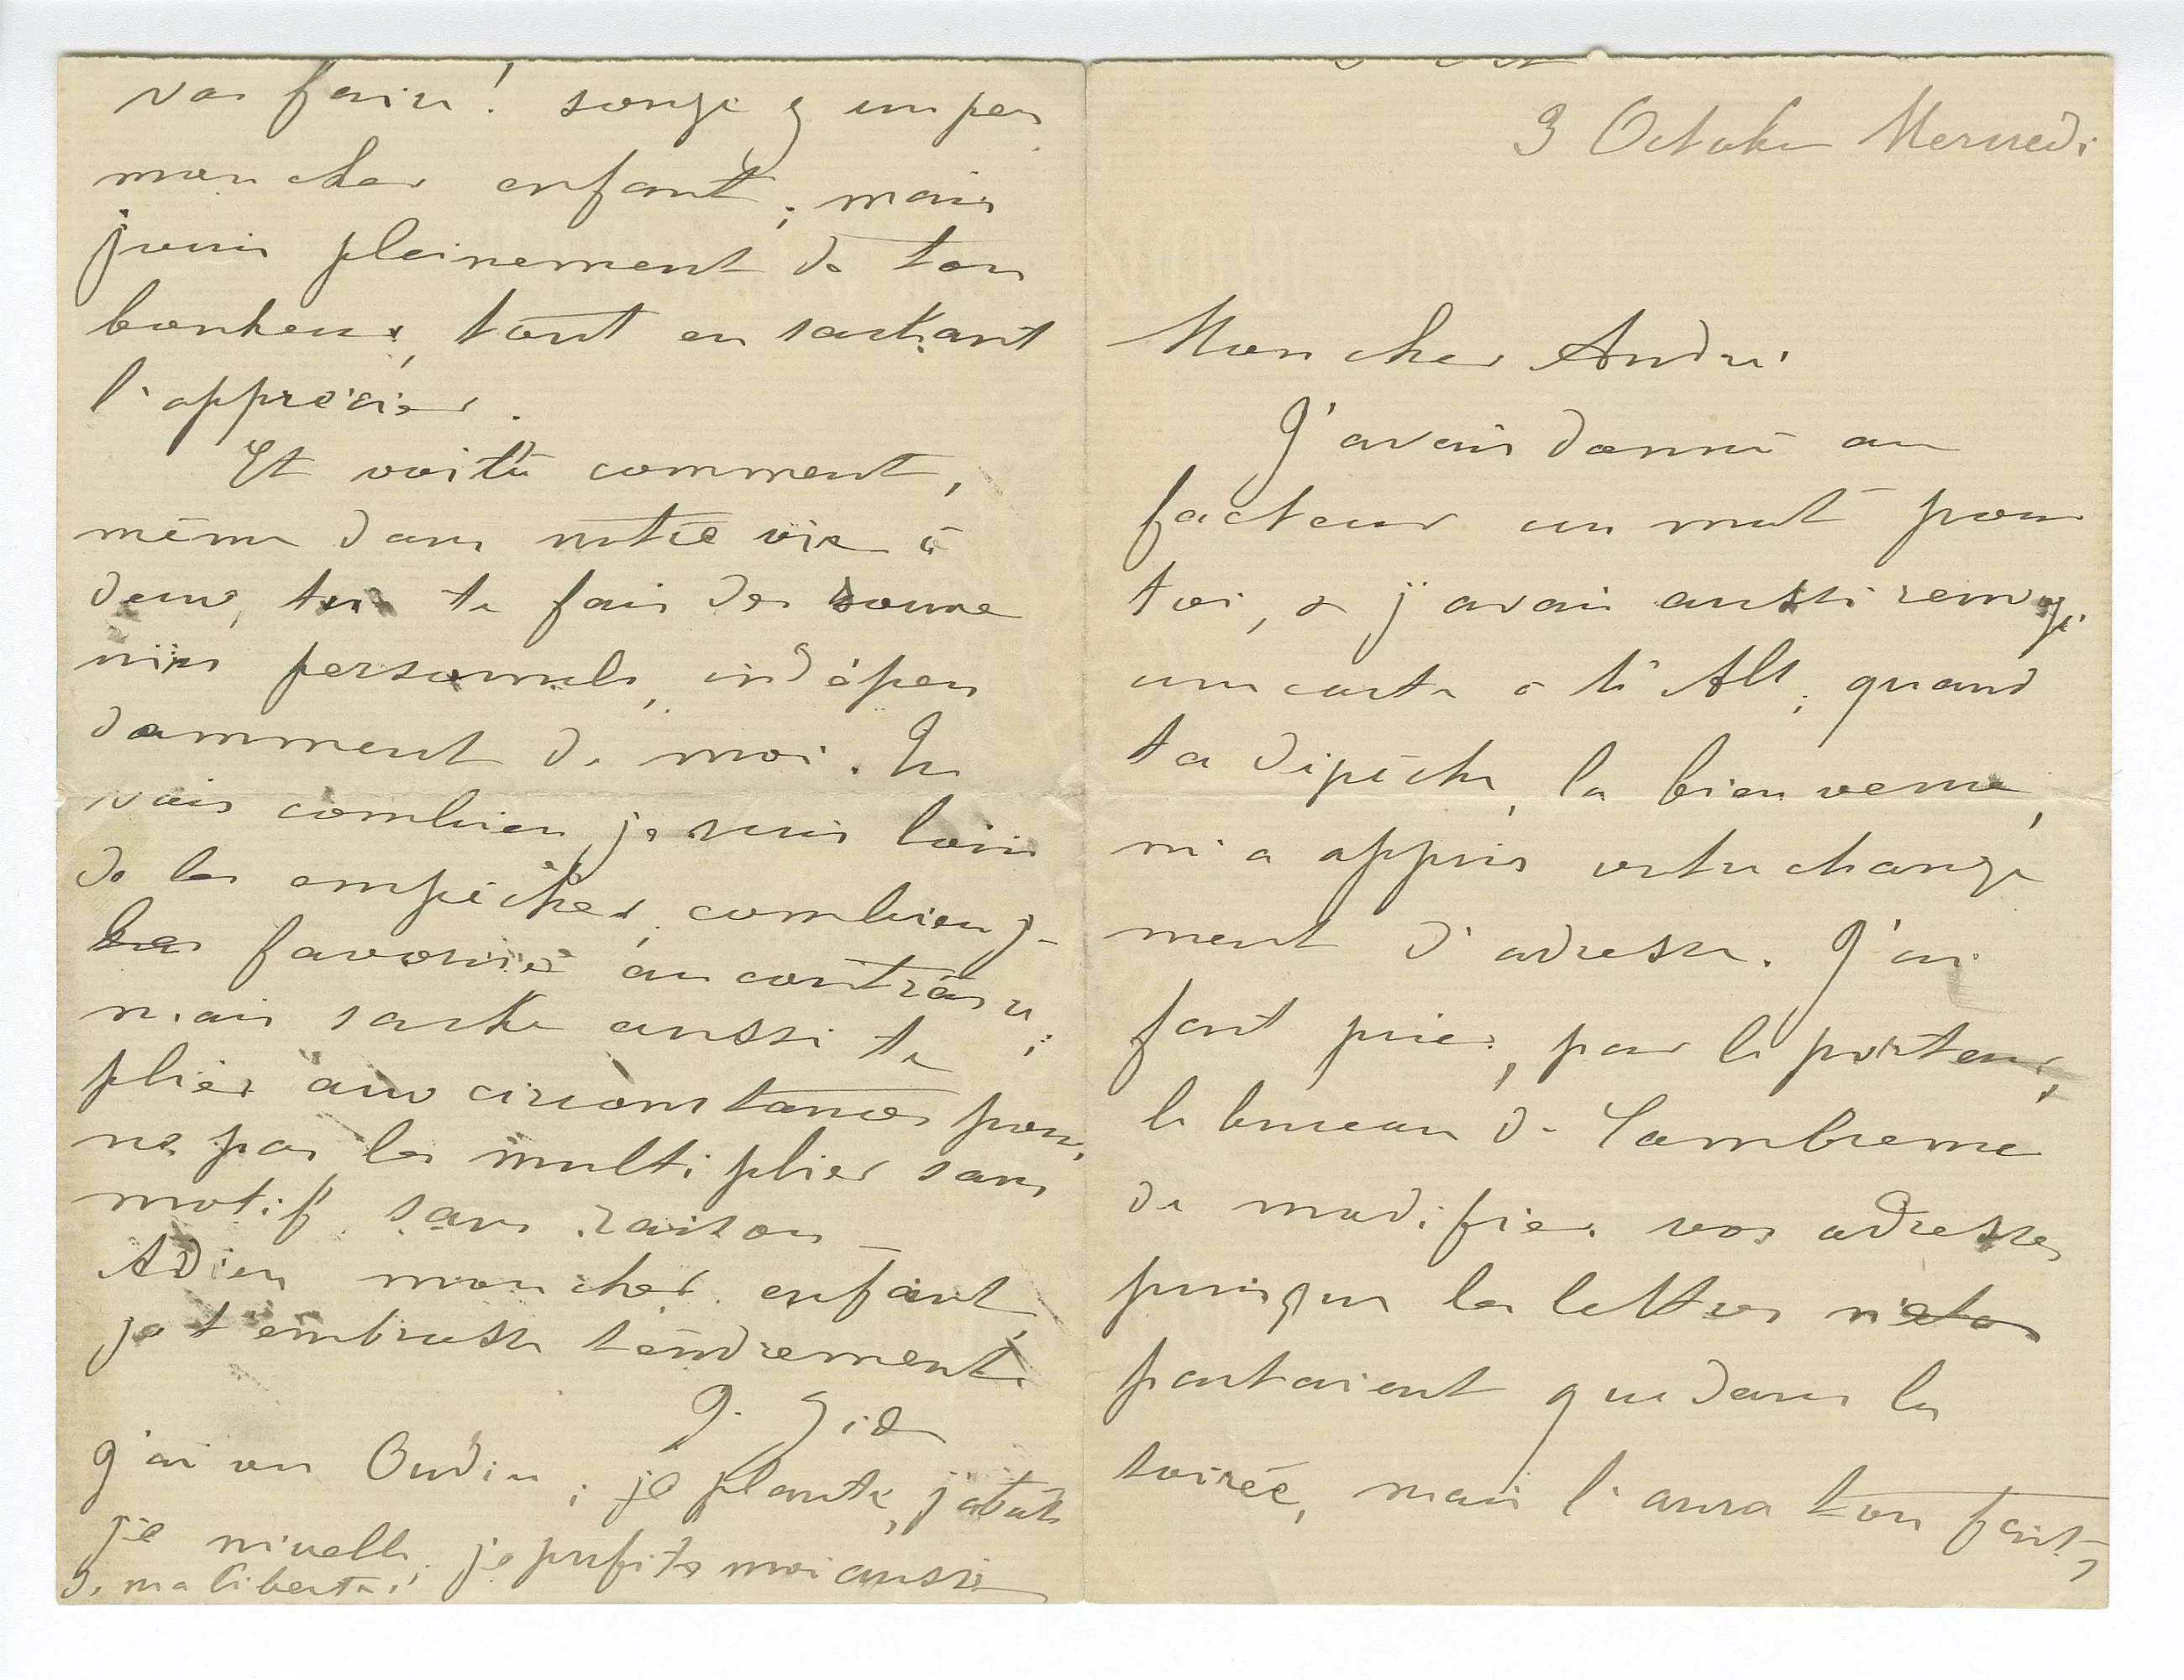 3 Octobre Mercredi
Mon cher André
J'avais donné au
facteur un mot pour
toi, & j'avais aussi rédigé
une carte à ta Alb; quand
ta dépêche, la bien venue,
m'a appris votre change
ment d'adresse. J'ai
fait prier, par le porteur,
le bureau de Cambremer
de modifier vos adresses
puisque les lettres n'e
partaient que dans la
soirée, mais l'aura t'on fait,
vas faire! songe y un peu
mon cher enfant; mais
jouis pleinement de ton
bonheur, tout en sachant
l'apprécier.
Et voilà comment,
même dans notre vie à
deux, tu te fais des souve
nirs personnels, indépen
damment de moi. Tu
vois combien je suis loin
de les empêcher, combien j-
les favorise au contraire;
mais sache aussi te
plier aux circonstances pour
ne pas les multiplier sans
motif, sans raison –
Adieu mon cher enfant,
je t'embrasse tendrement.
J. Gide
J'ai vu Oudin; je plante, j'abats
je nivelle; je profite moi aussi
de ma liberté!